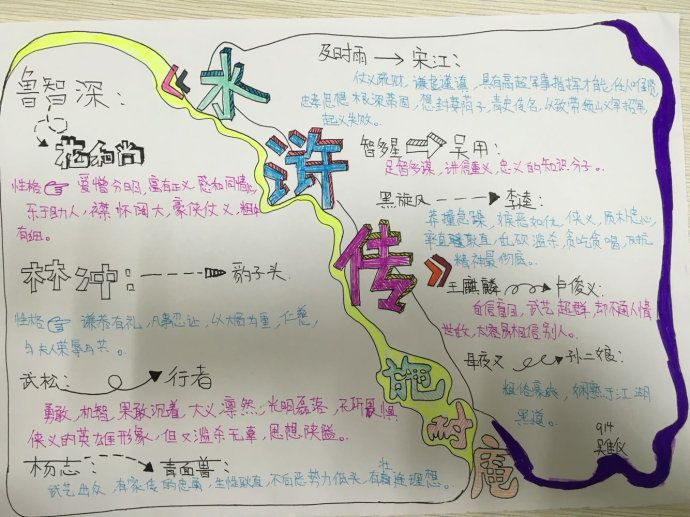 水
浒
传
施
耐
庵
鲁智深：
花和尚
性格 爱憎分明，富有正义感和同情心
乐于助人，襟怀阔大，豪侠仗义，粗中
有细。
林冲： 豹子头
性格 谦恭有礼，凡事忍让，以大局为重，仁慈，
与夫人荣辱与共。
武松： 行者
勇敢，机智，果敢沉着，大义凛然，光明磊落，无所畏惧
侠义的英雄形象，但又滥杀无辜，思想狭隘。
杨志： 青面兽
武艺出众，有家传的忠勇，生性耿直，不向恶势力低头，有壮途理想。
及时雨 宋江：
仗义疏财，谦虚谨慎，具有高超军事指挥才能，任人唯贤
忠孝思想根深蒂固，想封妻荫子，青史传名，以致带领义军招安
起义失败。
智多星 吴用：
足智多谋，讲信重义，忠义的知识分子。
黑旋风 李逵：
莽撞急躁，疾恶如仇，侠义，质朴忠心，
率直豪爽，乱砍滥杀，贪吃贪喝，反抗
精神最彻底。
玉麒麟 卢俊义：
自信盲目，武艺超群，却不通人情
世故，太容易相信别人。
母夜叉 孙二娘：
粗俗豪放，娴熟于江湖
黑道。
914